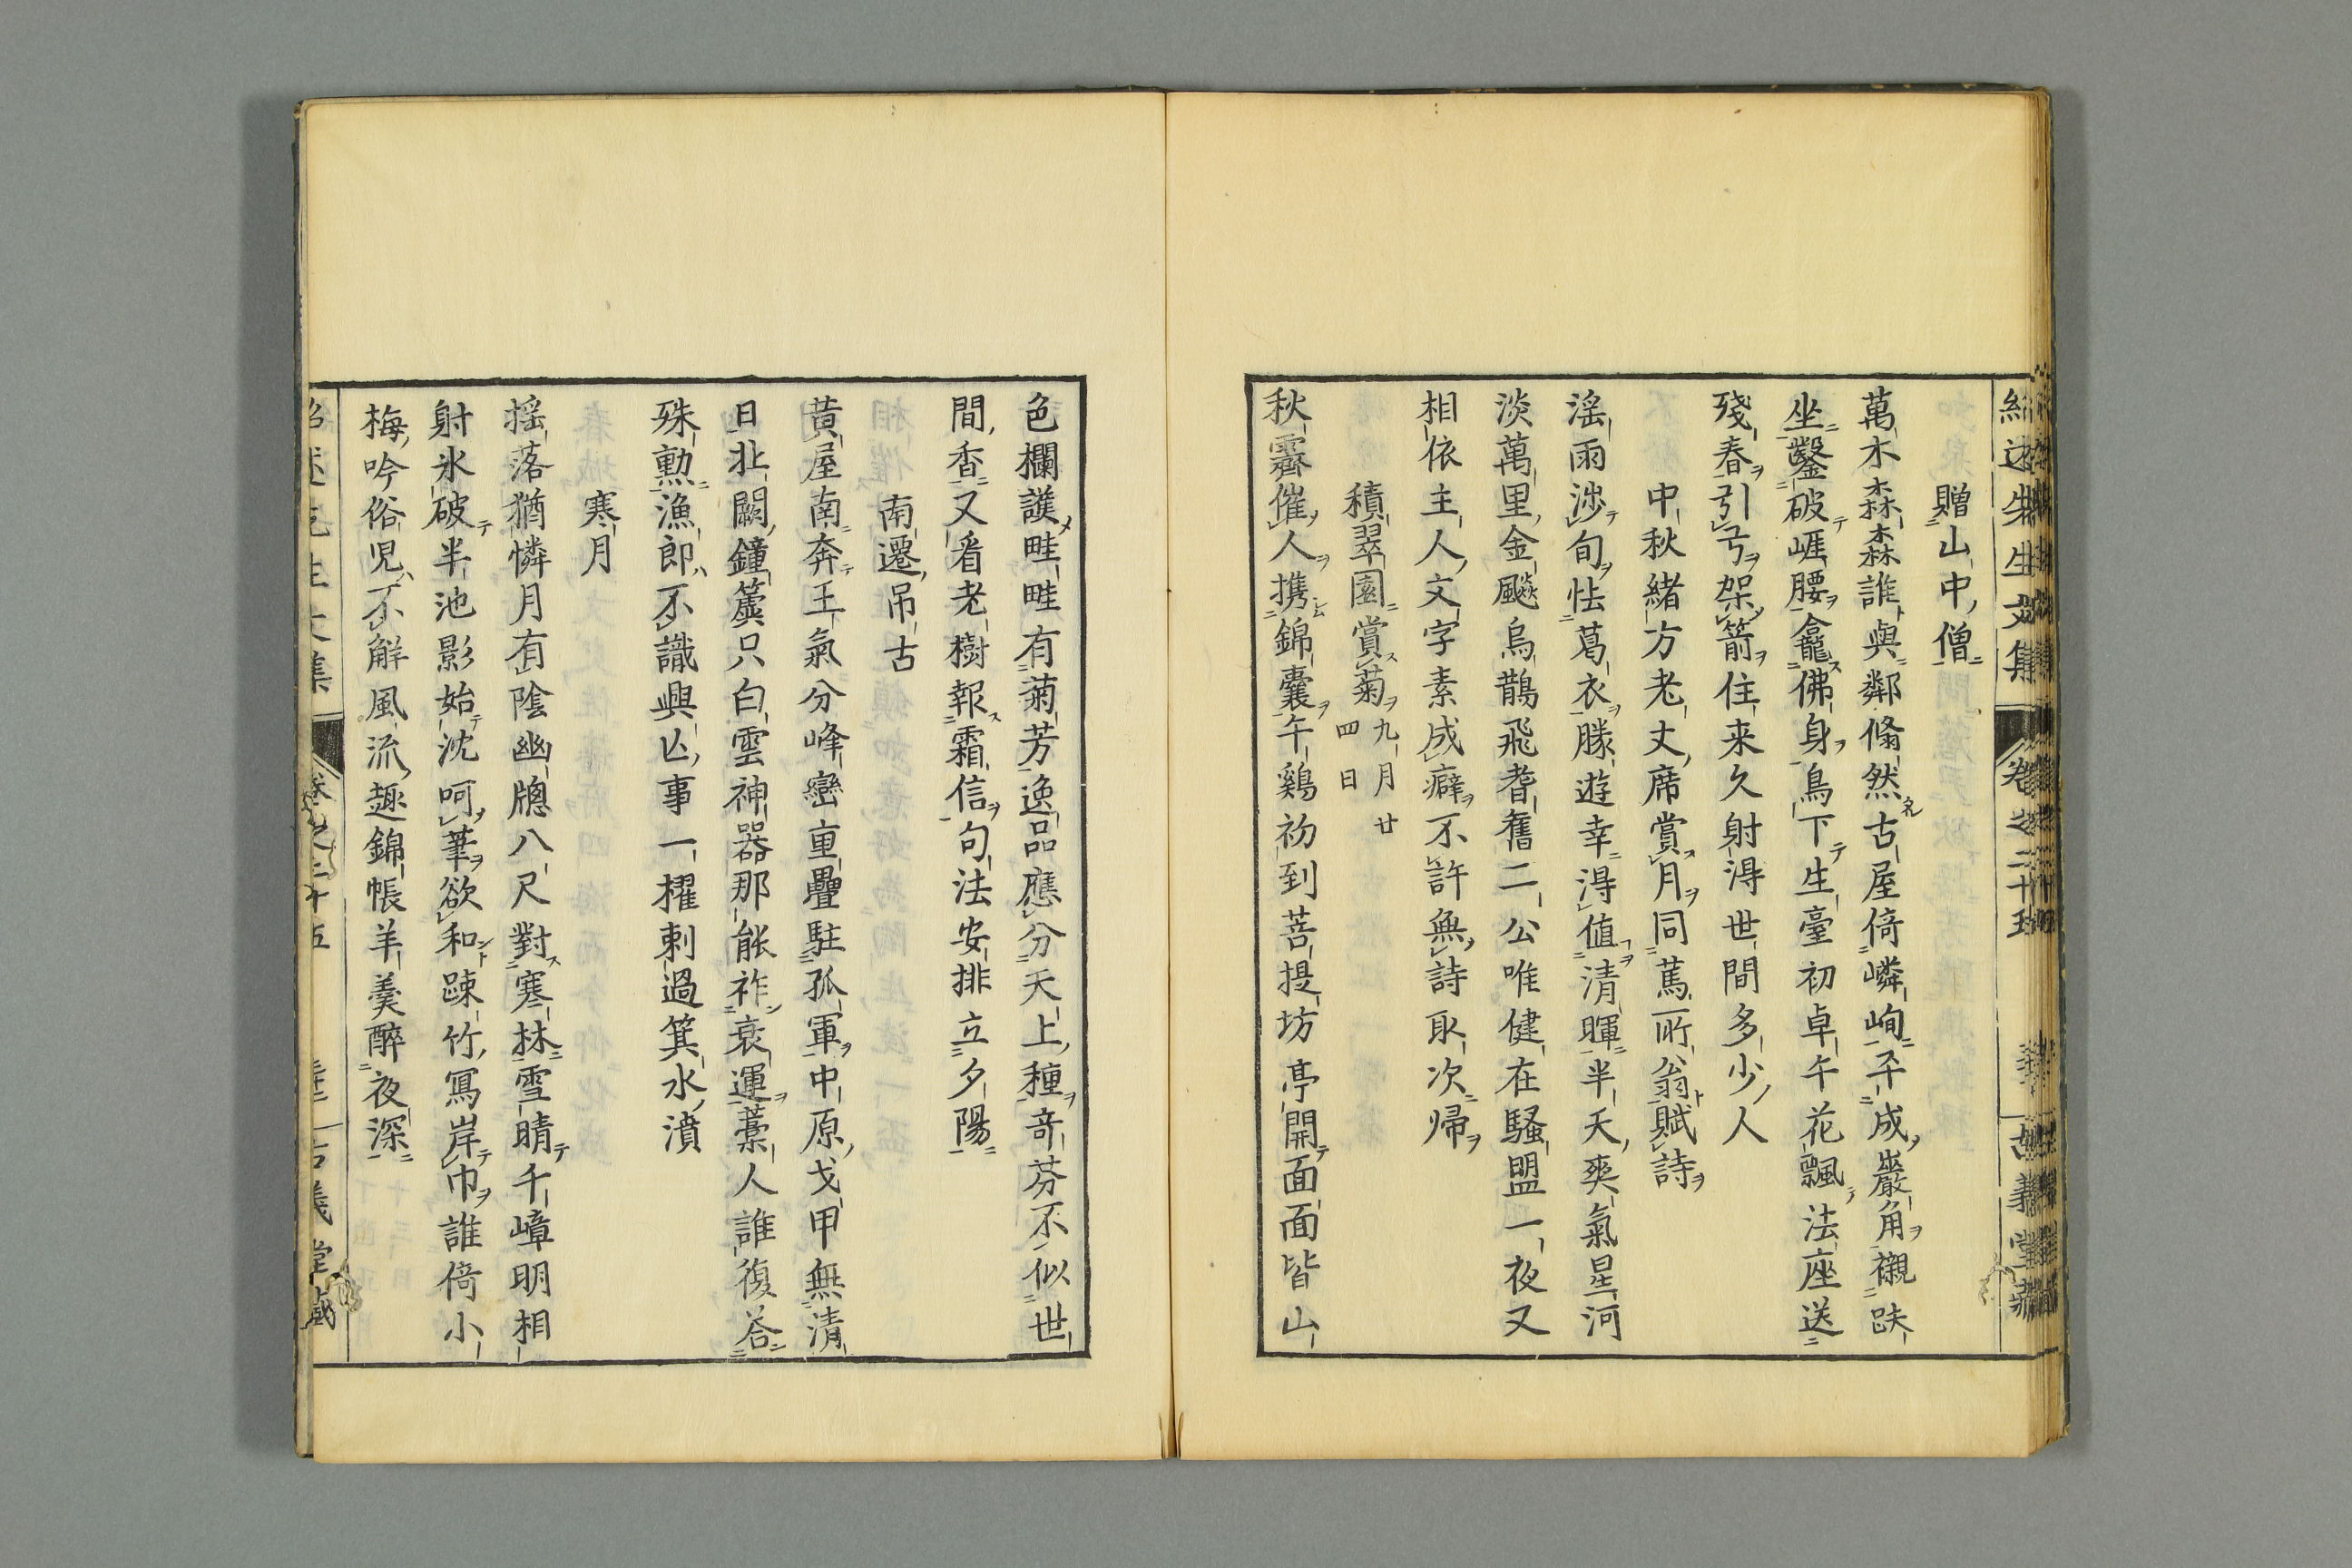 贈山中僧
萬木森森誰與鄰翛然古屋倚嶙峋平成巖角襯趺
坐鑿破崕腰龕佛身鳥下生臺初卓午花飄法座送
殘春引弓架箭住来久射得世間多少人
中秋緒方老丈席賞月同蔦所翁賦詩
淫雨涉旬怯葛衣勝遊幸得値清暉半天爽氣星河
淡萬里金飈烏鵲飛耆舊二公唯健在騷盟一夜又
相依主人文字素成癖不許無詩取次歸
積翠園賞菊九月廿
四日
秋霽催人携錦囊午鷄初到菩提坊亭開面面皆山
色欄護畦畦有菊芳逸品應分天上種奇芬不似世
間香又看老樹報霜信句法安排立夕陽
南遷吊古
黃屋南奔王氣分峰巒重疊駐孤軍中原戈甲無清
日北闕鐘簴只白雲神器那能祚衰運藁人誰復答
殊勲漁郎不識興亾事一擢刺過箕水濆
寒月
揺落猶憐月有陰幽牕八尺對寒林雪晴千嶂明相
射氷破半池影始沈呵筆欲和踈竹寫岸巾誰倚小
梅吟俗児不解風流趣錦帳羊羹醉夜深